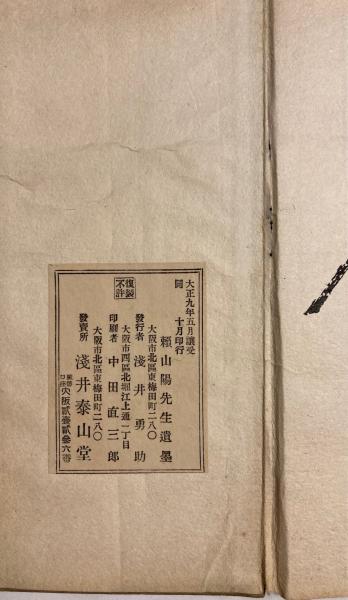 大正九年五月讓受
同 十月印行
復製
不許
賴山陽先生遺墨
大阪市北區東梅田町二八〇
發行者 淺井勇助
大阪市西區北堀江上通一丁目
印刷者 中田直三郎
大阪市北區東梅田町二八〇
發賣所 淺井泰山堂
振替口座大阪貳壹貳參六番